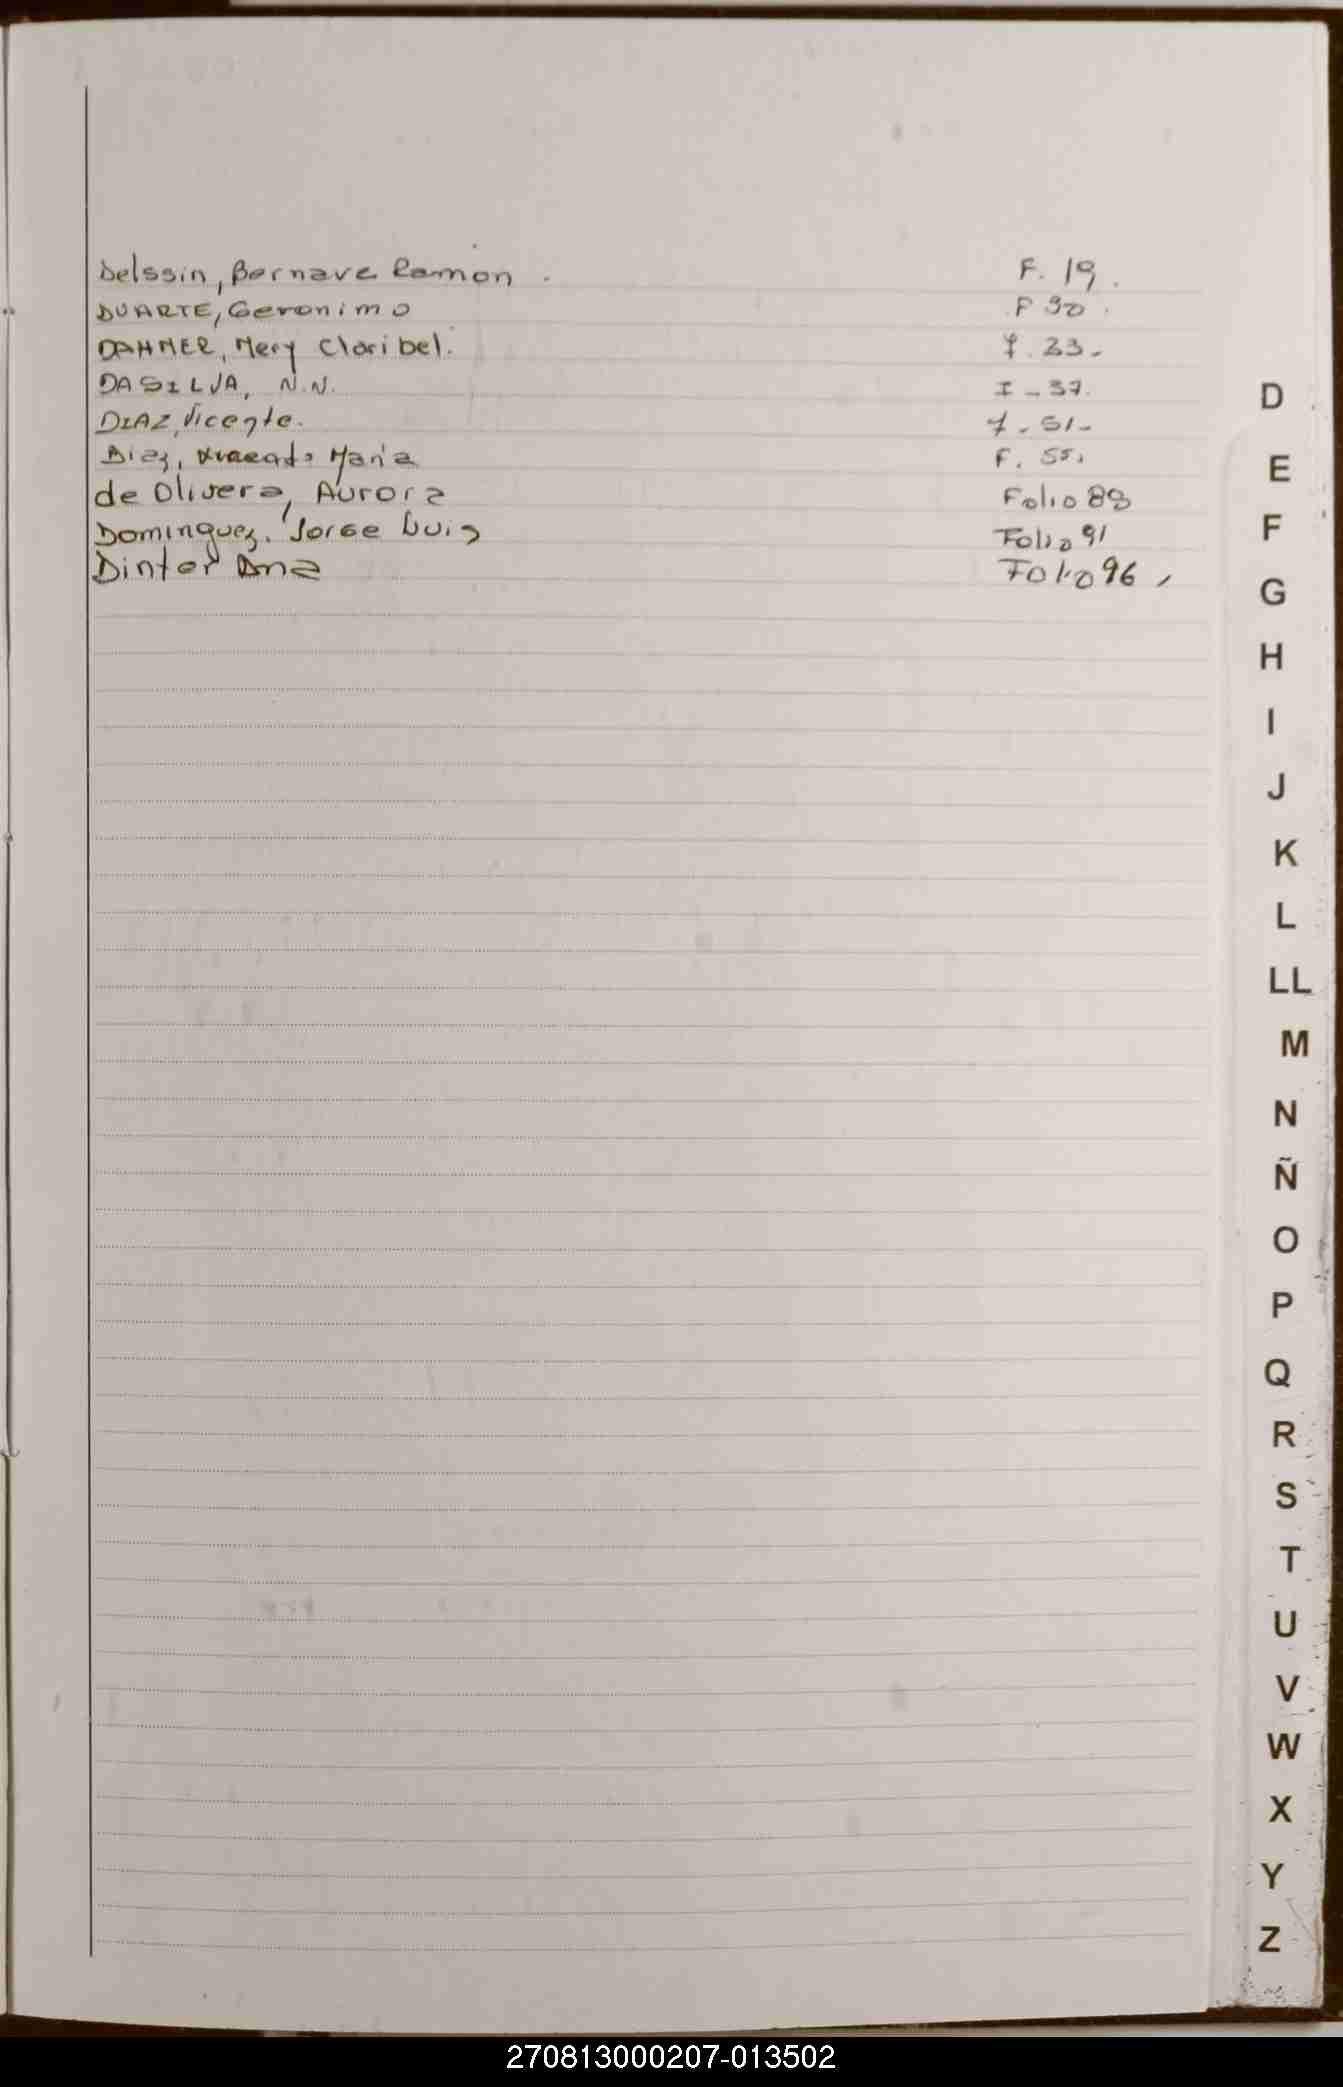 Delssin, Bernave Ramon. F. 19.
DUARTE, Geronimo F 30.
DAHMER, Mery Claribel. F. 33.
DASILVA, N.N. F - 37.
DIAZ, Vicente. F - 51-
Diaz, María F. 55.
de Olivera, Aurora Folio 88
Dominguez, Jorge Luis Folio 91
Dinter Ana Folio 96,
D
E
F
G
H
I
J
K
L
LL
M
N
Ñ
O
P
Q
R
S
T
U
V
W
X
Y
Z
270813000207-013502